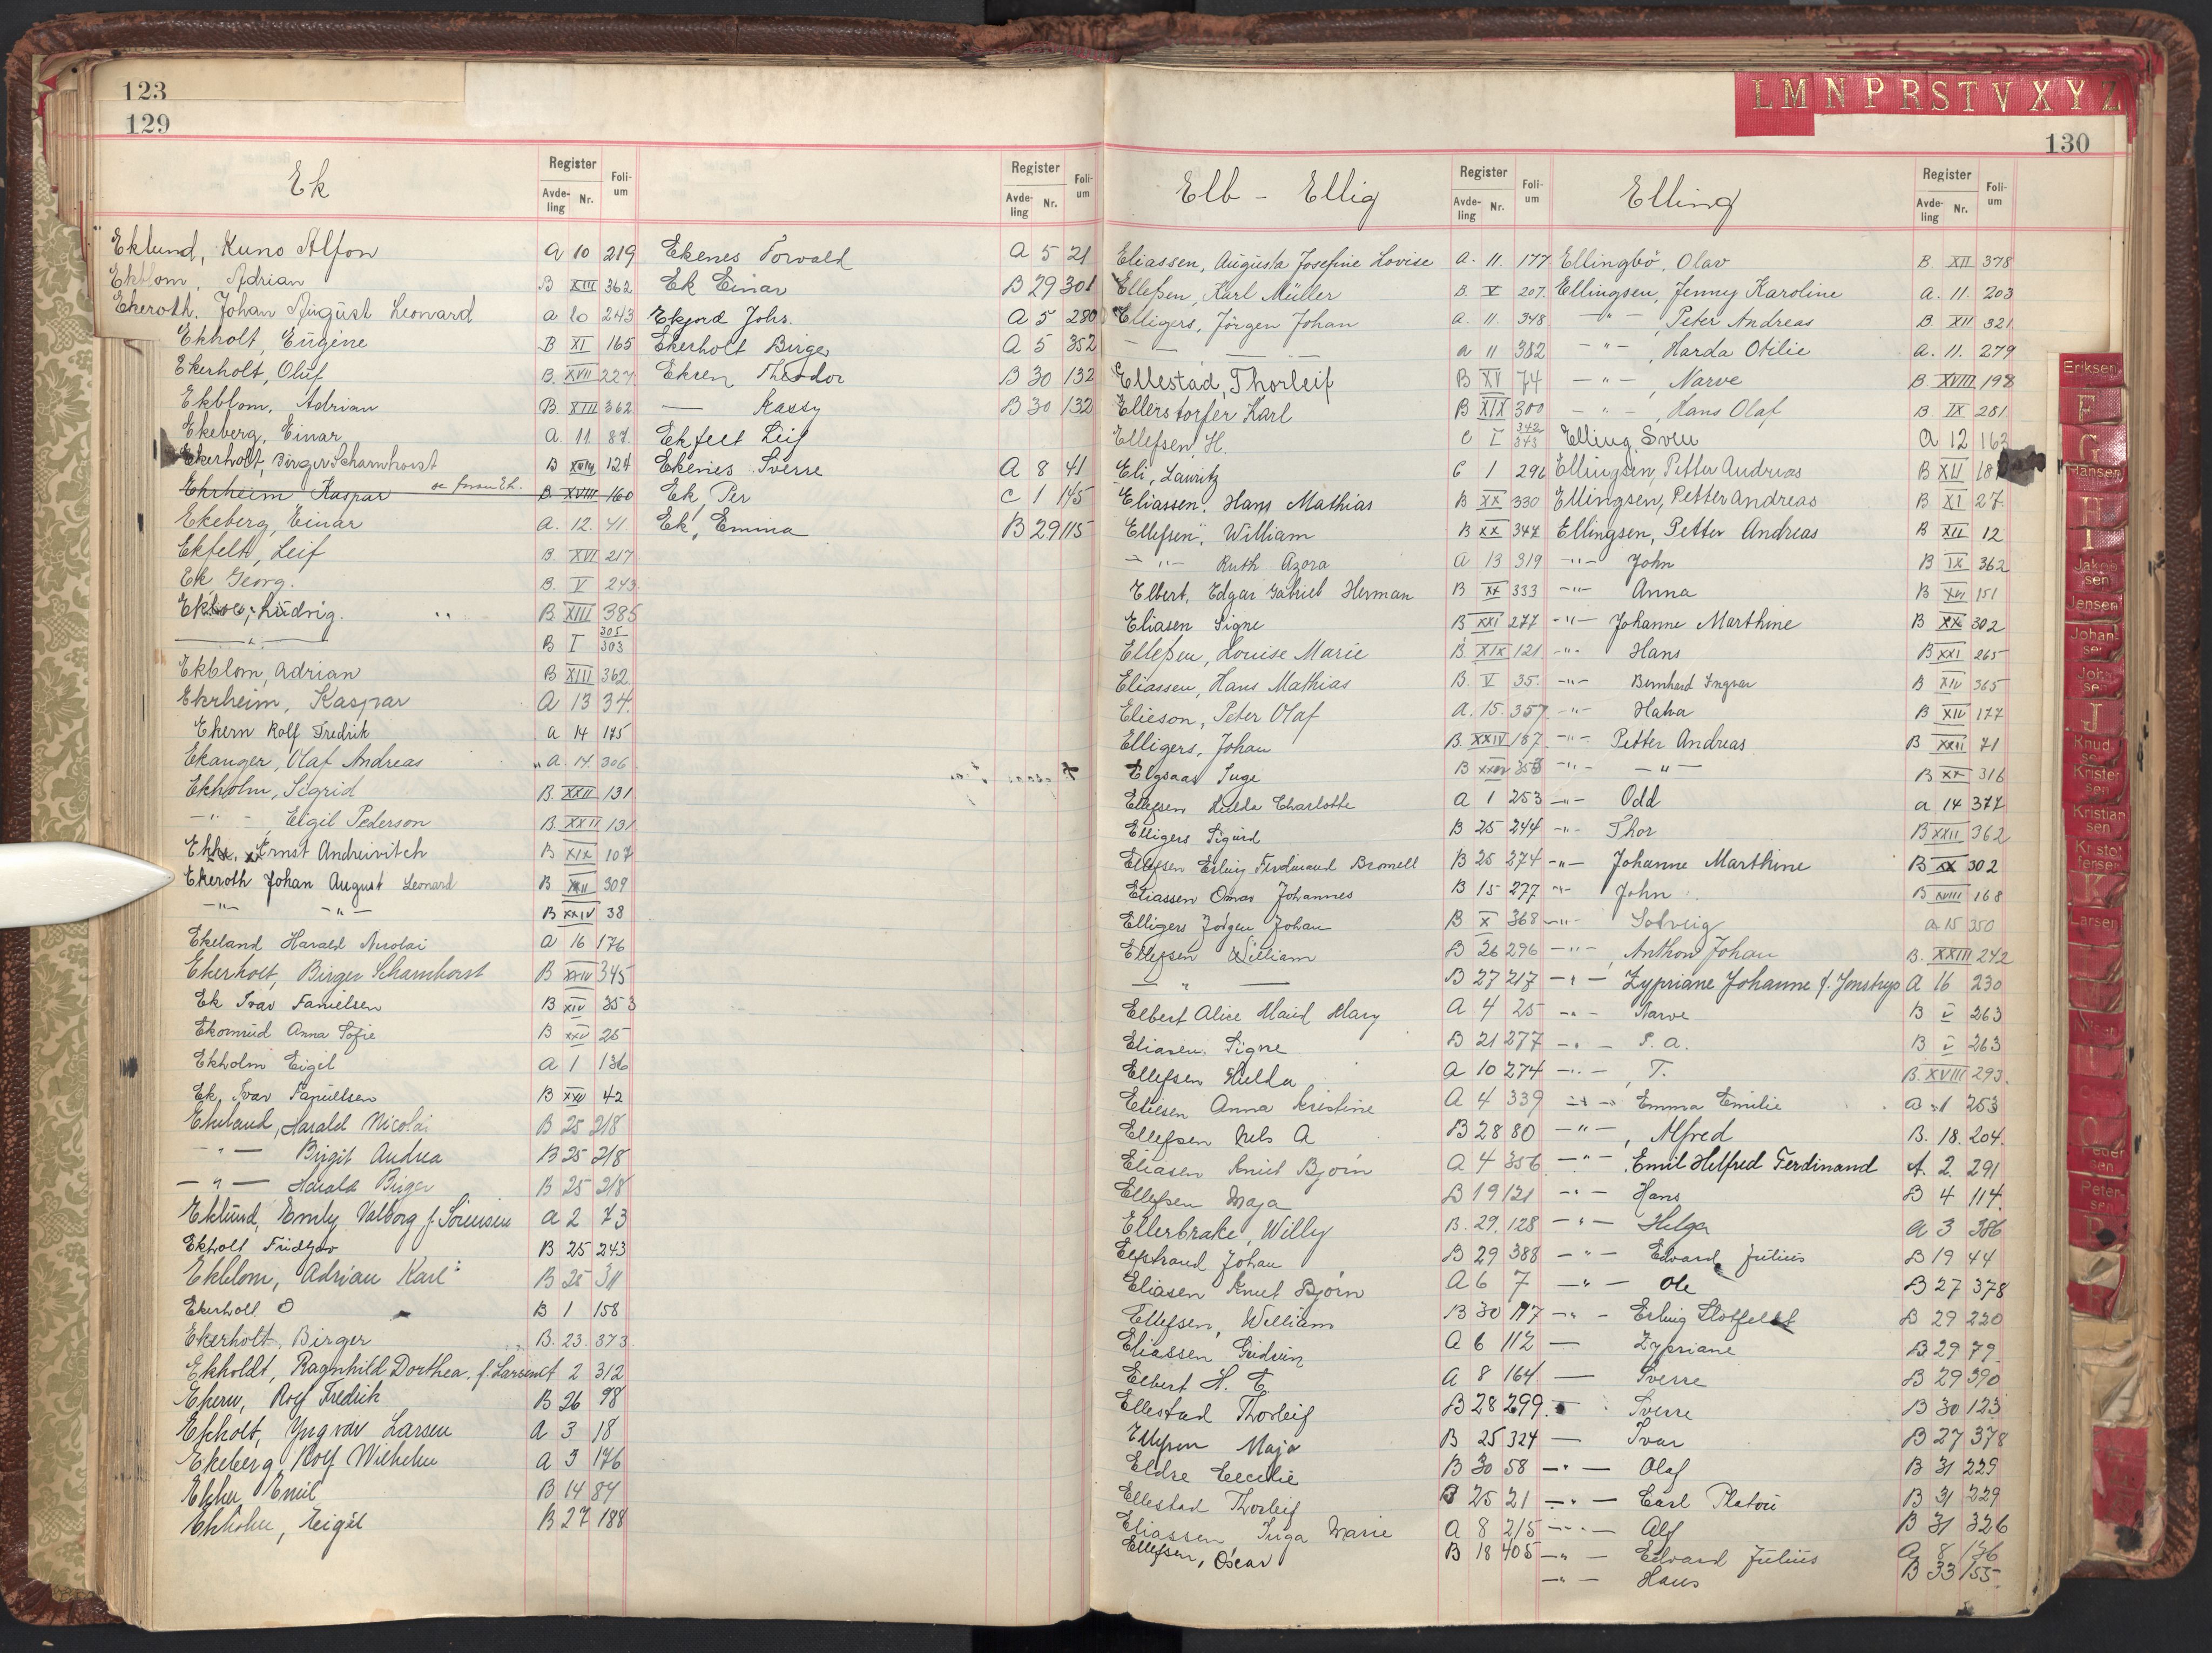 123
129
Ek
Register
Avde-ling Nr.
Foli-um
Eklund, Kuno Alfon A 10 219
Ekblom, Adrian B XIII 362
Ekeroth, Johan August Leonard a 10 243
Ekholt, Eugene B XI 165
Ekerholt, Oluf B. XVII 227
Ekblom, Adrian B. XIII 362
Ekeberg, Einar A. 11. 87.
Ekerholt, Birger Scharnhorst B XVIII 124
Ekrheim Kaspar B. XVIII 160
Ekeberg, Einar A. 12. 41
Ekfelt, Leif B. XVI 217
Ek Georg. B. V 243
Ludvig. B XIII 385
B I 305 303
Ekblom, Adrian B XIII 362
Ekrheim, Kaspar A 13 34.
Ekern Rolf Fredrik A 14 175
Ekanger, Olaf Andreas A. 14. 306
Ekholm, Sigrid B. XXII 131
-"- , Eigil Pederson B. XXII 131
Ernst Andreivitch B XIX 107
Ekeroth Johan August Leonard B XXII 309
-"- -"- B XXIV 38
Ekeland Harald Nicolai A 16 176
Ekerholt, Birger Scharnhorst B XXIV 345
Ek Ivar Fanuelsen B XIV 353
Ekornrud Anna Sofie B XXV 25
Ekholm Eigil A 1 136
Ek, Ivar Fanuelsen B XXV 42
Ekeland, Harald Nicolai B 25 218
-"- Birgit Andrea B 25 218
-"- Harald Birger B 25 218
Eklund, Emly Valborg f. Sörensen A 2 73
Ekholt Fridtjov B 25 243
Ekblom, Adrian Karl B 25 311
Ekerholt O B 1 158
Ekerholt, Birger B. 23. 373
Ekholdt, Ragnhild Dorthea. f. Larsen A 2 312
Ekern, Rolf Fredrik B 26 98
Ekholt, Yngvar Larsen A 3 18
Ekeberg Rolf Wilhelm A 3 176
Emil B 14 84
Ekholm, Eigil B 27 188
Register
Avde-ling Nr.
Foli-um
Ekenes Torvald A 5 21
Ek Einar B 29 301
Ekjord Johs. A 5 280
Ekerholt Birger A 5 352
Eksen Theodor B 30 132
— Kassy B 30 132
Ekfelt Leif
Ekenes Sverre A 8 41
Ek, Per C 1 145
Ek, Emma B 29 115
L M N P R S T V X Y Z
130
Elb - Ellig
Register
Avde-ling Nr.
Foli-um
Eliassen, Augusta Josefine Lovise A. 11. 177
Ellefsen, Karl Müller B. V 207.
Elligers, Jörgen Johan A. 11. 348
— — — a 11 382
Ellestad, Thorleif B XV 74
Ellerstorfer Karl B XIX 300
Ellefsen, H. C I 342 343
Eli, Lauritz C 1 296
Eliassen, Hans Mathias B XX 330
Ellefsen, William B XX 347
-"- Ruth Azora A 13 319
Elbert, Edgar Gabriel Herman B XX 333
Eliasen Signe B XXI 277
Ellefsen, Louise Marie B. XIX 121
Eliassen, Hans Mathias B. V 35.
Elieson, Peter Olaf A. 15. 357
Elligers, Johan B. XXIV 187
Elgsaas Inge
Ellefsen Hulda Charlotte A 1 253
Elligers Sigurd B 25 244
Ellefsen Erling Ferdinand Bromell B 25 274
Eliassen Omar Johannes B 15 277
Elligers Jörgen Johan B X 368
Ellefsen William B 26 296
— " — B 27 217
Elbert Alice Maud Mary A 4 25
Eliasen, Signe B 21 277
Ellefsen Hulda A 10 274
Eliesen Anna Kristine A 4 339
Ellefsen Nels A B 28 80
Eliasen Knut Bjørn A 4 356
Ellefsen Maja B 19 121
Ellerbrake, Willy B. 29. 128
Elfstrand Johan B 29 388
Eliasen Knut Bjørn A 6 7
Ellefsen, William B 30 117
Eliassen Gudrun A 6 112
Elbert H. E A 8 164
Ellestad Thorleif B 28 299
Ellefsen Maja B 25 324
Eldre Cecelie B 30 58
Ellestad Thorleif B 25 21
Eliassen Inga Marie A 8 215
Ellefsen, Oscar B 18 405
Elling
Register
Avde-ling Nr.
Foli-um
Ellingbö, Olav B. XII 378
Ellingsen, Jenny Karoline A. 11. 203
-"- , Peter Andreas B. XII 321
-"- , Harda Otilie A. 11. 279
-"- , Narve B. XVIII 198
-"- , Hans Olaf B IX 281
Elling Sven A 12 162
Ellingsen, Petter Andreas B XII 18
Ellingsen, Petter Andreas B XI 27.
Ellingsen, Petter Andreas B XII 12
-"- John B IX 362
-"- Anna B XVI 151
-"- Johanne Marthine B XX 302
-"- Hans B XXI 265
-"- Bernhard Ingvar B XIV 365
-"- B XIV 177
-"- Petter Andreas B XXII 71
-"- -"- B XX 316
-"- Odd a 14 377
-"- Thor B XXII 362
-"- Johanne Marthine B XX 302
-"- John B XVIII 168
-"- Solveig a 15 350
-"- , Anthon Johan B. XXIII 242
-"- Zypriane Johanne f. A 16 230
-"- Narve B V 263
-"- P. A. B V 263
-"- , T. B. XVIII 293.
-"- Emma Emilie 1 253
-"- , Alfred B. 18. 204.
-"- , Emil Helfred Ferdinand A. 2 291
-"- Hans B 4 114.
-"- Helga A 3 386
-"- Edvard Julius B 19 44
-"- Ole B 27 378
-"- Erling Slotfeldt B 29 220
— Zypriane B 29 79
— Sverre B 29 390
— Sverre B 30 123
— Ivar B 27 378
-"- Olaf B 31 229
-"- Carl Platou B 31 229
-"- Alf B 31 326
-"- Edvard Julius A 8 136
-"- Hans B 33 155
Eriksen
F
G
Hansen
H
I
Jakob sen
Jensen
Johan sen
John sen
J
Knud sen
Kristen sen
Kristian sen
Kristof fersen
K
Larsen
O
Peder sen
Peter sen
P